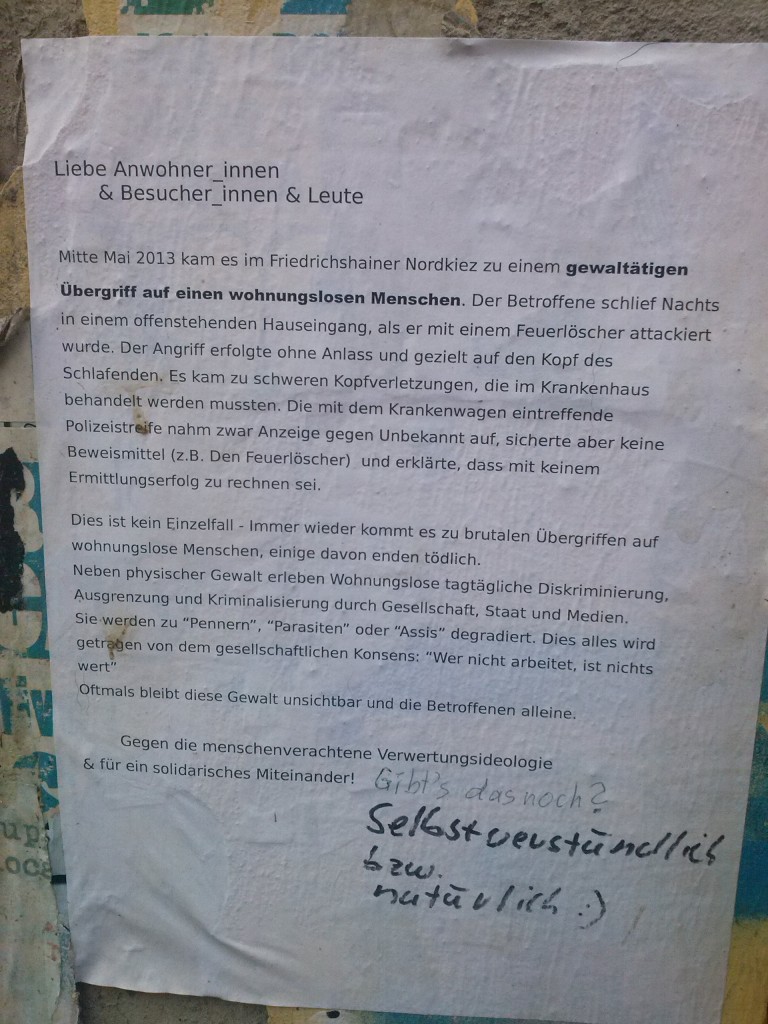 Liebe Anwohner_innen
& Besucher_innen & Leute
Mitte Mai 2013 kam es im Friedrichshainer Nordkiez zu einem gewaltätigen
Übergriff auf einen wohnungslosen Menschen. Der Betroffene schlief Nachts
in einem offenstehenden Hauseingang, als er mit einem Feuerlöscher attackiert
wurde. Der Angriff erfolgte ohne Anlass und gezielt auf den Kopf des
Schlafenden. Es kam zu schweren Kopfverletzungen, die im Krankenhaus
behandelt werden mussten. Die mit dem Krankenwagen eintreffende
Polizeistreife nahm zwar Anzeige gegen Unbekannt auf, sicherte aber keine
Beweismittel (z.B. Den Feuerlöscher) und erklärte, dass mit keinem
Ermittlungserfolg zu rechnen sei.
Dies ist kein Einzelfall - Immer wieder kommt es zu brutalen Übergriffen auf
wohnungslose Menschen, einige davon enden tödlich.
Neben physischer Gewalt erleben Wohnungslose tagtägliche Diskriminierung,
Ausgrenzung und Kriminalisierung durch Gesellschaft, Staat und Medien.
Sie werden zu “Pennern”, “Parasiten” oder “Assis” degradiert. Dies alles wird
getragen von dem gesellschaftlichen Konsens: “Wer nicht arbeitet, ist nichts
wert”
Oftmals bleibt diese Gewalt unsichtbar und die Betroffenen alleine.
Gegen die menschenverachtene Verwertungsideologie
& für ein solidarisches Miteinander! Gibt's das noch?
Selbstverständlich
bzw.
natürlich :)